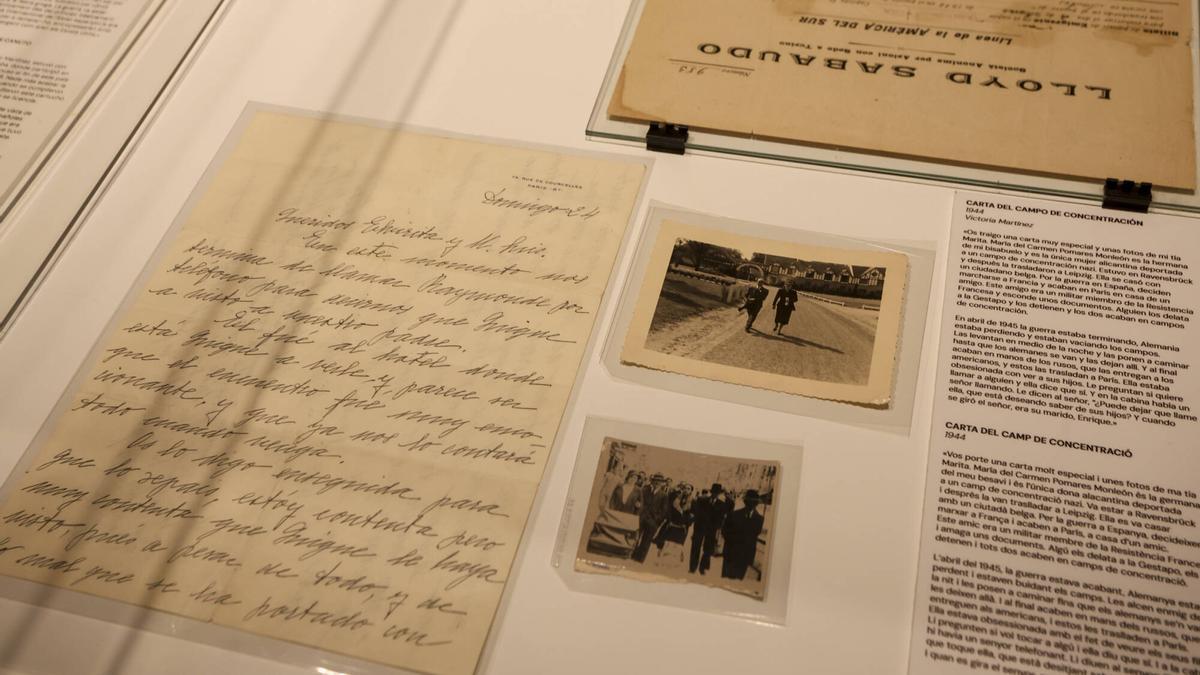 LLOYD SABAUDO
Società Anonima per Azioni con Sede a Torino
Linea de la AMÉRICA DEL SUR
Número 953
75, RUE DE COURCELLES
PARIS - 8E
Domingo 24
Queridos Eduardo y M. Luis.
En este momento nos
termina de llamar Raymonde por
telefono para decirnos que Enrique
a visto a nuestro padre.
El fue al hotel donde
está Enrique a verle y parece ser
que el encuentro fue muy emo-
cionante, y que ya nos lo contará
todo cuando venga.
Os lo digo enseguida para
que lo sepais, estoy contenta pero
muy contenta que Enrique le haya
visto, pues a pesar de todo, y de
lo mal que se ha portado con
CARTA DEL CAMPO DE CONCENTRACIÓN
1944
Victoria Martínez
«Os traigo una carta muy especial y unas fotos de mi tía
Marita. María del Carmen Pomares Monleón es la hermana
de mi bisabuelo y es la única mujer alicantina deportada
a un campo de concentración nazi. Estuvo en Ravensbrück
y después la trasladaron a Leipzig. Ella se casó con
un ciudadano belga. Por la guerra en España, deciden
marcharse a Francia y acaban en París en casa de un
amigo. Este amigo era un militar miembro de la Resistencia
Francesa y esconde unos documentos. Alguien los delata
a la Gestapo y los detienen y los dos acaban en campos
de concentración.
En abril de 1945 la guerra estaba terminando, Alemania
estaba perdiendo y estaban vaciando los campos.
Las levantan en medio de la noche y las ponen a caminar
hasta que los alemanes se van y las dejan allí. Y al final
acaban en manos de los rusos, que las entregan a los
americanos, y estos las trasladan a París. Ella estaba
obsesionada con ver a sus hijos. Le preguntan si quiere
llamar a alguien y ella dice que sí. Y en la cabina había un
señor llamando. Le dicen al señor, "¿Puede dejar que llame
ella, que está deseando saber de sus hijos? Y cuando
se giró el señor, era su marido, Enrique.»
CARTA DEL CAMP DE CONCENTRACIÓ
1944
«Vos porte una carta molt especial i unes fotos de ma tia
Marita. María del Carmen Pomares Monleón és la germana
del meu besavi i és l'única dona alacantina deportada
a un camp de concentració nazi. Va estar a Ravensbrück
i després la van traslladar a Leipzig. Ella es va casar
amb un ciutadà belga. Per la guerra a Espanya, decideixen
marxar a França i acaben a París, a casa d'un amic.
Este amic era un militar membre de la Resistència Francesa
i amaga uns documents. Algú els delata a la Gestapo, els
detenen i tots dos acaben en camps de concentració.
L'abril del 1945, la guerra estava acabant, Alemanya
perdent i estaven buidant els camps. Les alcen enmig de
la nit i les posen a caminar fins que els alemanys se'n van
les deixen allà. I al final acaben en mans dels russos, que
entreguen als americans, i estos les traslladen a París.
Ella estava obsessionada amb el fet de veure els seus
Li pregunten si vol tocar a algú i ella diu que sí. I a la
hi havia un senyor telefonant. Li diuen al senyor
que toque ella, que està desitjant
I quan es gira el